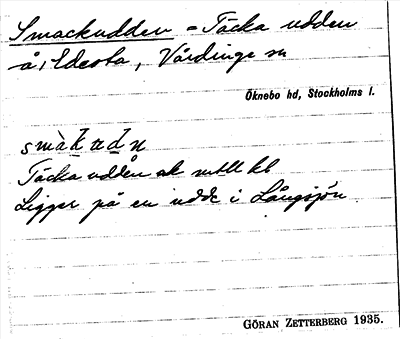 Smackudden = Täcka udden
å, Edesta, Vårdinge sn
Öknebo hd, Stockholms l.
smàk ud n
Täcka udden ak
Ligger på en udde i Långsjön
GÖRAN ZETTERBERG 1935.